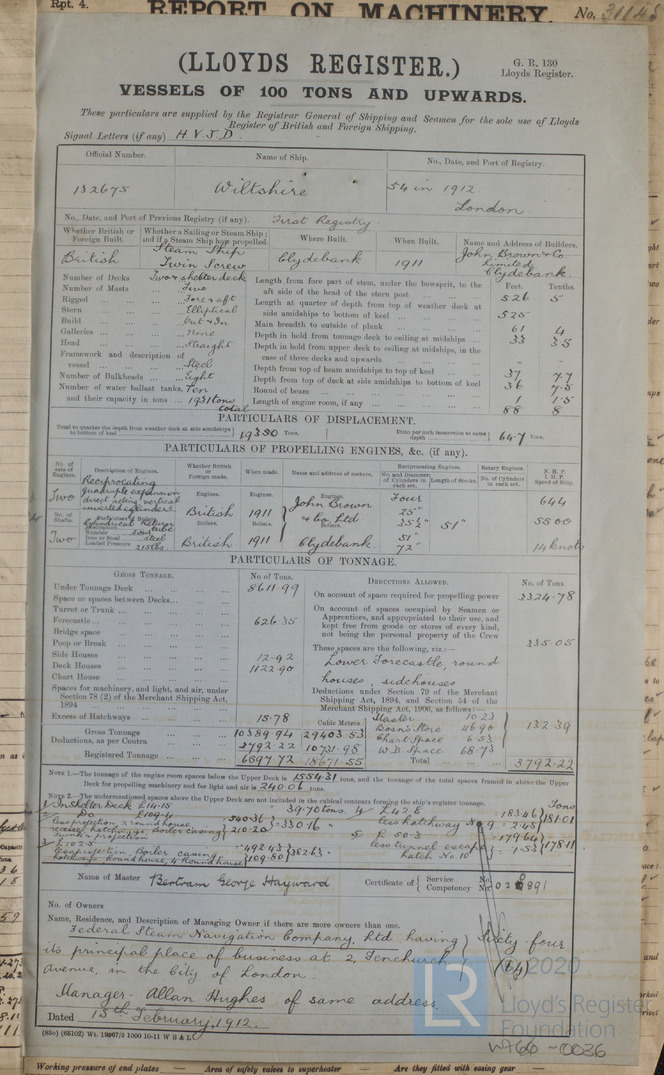 Rpt. 4.
REPORT ON MACHINERY.
No. 31145
(LLOYDS REGISTER.)
G. R. 130
Lloyds Register.
VESSELS OF 100 TONS AND UPWARDS.
These particulars are supplied by the Registrar General of Shipping and Seamen for the sole use of Lloyds
Register of British and Foreign Shipping.
Signal Letters (if any) H V J D
Official Number. Name of Ship. No., Date, and Port of Registry.
132675 Wiltshire 54 in 1912
London
No., Date, and Port of Previous Registry (if any). First Registry
Whether British or Foreign Built. Whether a Sailing or Steam Ship; and if a Steam Ship how propelled. Where Built. When Built. Name and Address of Builders.
British Steam Ship Twin Screw Clydebank 1911 John Brown & Co Limited Clydebank
Feet. Tenths.
Number of Decks Two & shelter deck
Number of Masts Two
Rigged Fore & aft
Stern Elliptical
Build Out & In
Galleries None
Head Straight
Framework and description of vessel Steel
Number of Bulkheads Eight
Number of water ballast tanks, Ten
and their capacity in tons 1931 tons total
Length from fore part of stem, under the bowsprit, to the aft side of the head of the stern post 526 5
Length at quarter of depth from top of weather deck at side amidships to bottom of keel 525
Main breadth to outside of plank 61 4
Depth in hold from tonnage deck to ceiling at midships 33 3.5
Depth in hold from upper deck to ceiling at midships, in the case of three decks and upwards - -
Depth from top of beam amidships to top of keel 37 7.7
Depth from top of deck at side amidships to bottom of keel 36 7.5
Round of beam 1 1.5
Length of engine room, if any 88 8
PARTICULARS OF DISPLACEMENT.
Total to quarter the depth from weather deck at side amidships to bottom of keel 19350 Tons.
Ditto per inch immersion at same depth 64.7 Tons.
PARTICULARS OF PROPELLING ENGINES, &c. (if any).
No. of sets of Engines. Description of Engines. Whether British or Foreign made. When made. Name and address of makers. Reciprocating Engines. No. and Diameter of Cylinders in each set. Length of Stroke. Rotary Engines. No. of Cylinders in each set. N. H. P. I. H. P. Speed of Ship.
Two Reciprocating quadruple expansion direct acting vertical inverted cylinders
Engines. British Engines. 1911 John Brown & Co. Ltd Clydebank
Four 25" 35½" 51" 72" 51" 644 5500 14 knots
No. of Shafts. Two
Particulars of Boilers.
Description Cylindrical Return tube
Number Four
Iron or Steel steel
Loaded Pressure 215 lbs
Boilers. British Boilers. 1911
PARTICULARS OF TONNAGE.
GROSS TONNAGE. No of Tons. DEDUCTIONS ALLOWED. No. of Tons.
Under Tonnage Deck 8611.99
Space or spaces between Decks
Turret or Trunk
Forecastle 626.35
Bridge space
Poop or Break
Side Houses 12.92
Deck Houses 1122.90
Chart House
Spaces for machinery, and light, and air, under Section 78 (2) of the Merchant Shipping Act, 1894
Excess of Hatchways 15.78
Cubic Metres
Gross Tonnage 10389.94 29403.53
Deductions, as per Contra 3792.22 10731.98
Registered Tonnage 6597.72 18671.55
On account of space required for propelling power 3324.78
On account of spaces occupied by Seamen or Apprentices, and appropriated to their use, and kept free from goods or stores of every kind, not being the personal property of the Crew 335.05
These spaces are the following, viz.:—
Lower Forecastle, round houses, sidehouses
Deductions under Section 79 of the Merchant Shipping Act, 1894, and Section 54 of the Merchant Shipping Act, 1906, as follows:—
Master 10.23
Bosn's Store 46.90
Chart Space 6.53
W.B Space 68.73
132.39
Total 3792.22
NOTE 1.—The tonnage of the engine room spaces below the Upper Deck is 1554.31 tons, and the tonnage of the total spaces framed in above the Upper Deck for propelling machinery and for light and air is 240.06 tons.
NOTE 2.—The undermentioned spaces above the Upper Deck are not included in the cubical contents forming the ship's register tonnage.
Name of Master Bertram George Hayward
Certificate of Service Competency No.
No. of Owners
Name, Residence, and Description of Managing Owner if there are more owners than one.
Federal Steam Navigation Company, Ltd having
its principal place of business at 2, Fenchurch
avenue, in the City of London.
Sixty four
(64)
Manager - Allan Hughes of same address.
Dated 15th February, 1912.
(85o) (65102) Wt. 19867/3 1000 10-11 W B & L
LR
© 2020
Lloyd's Register
Foundation
W766-0036
Working pressure of end plates
Area of safety valves to superheater
Are they fitted with easing gear